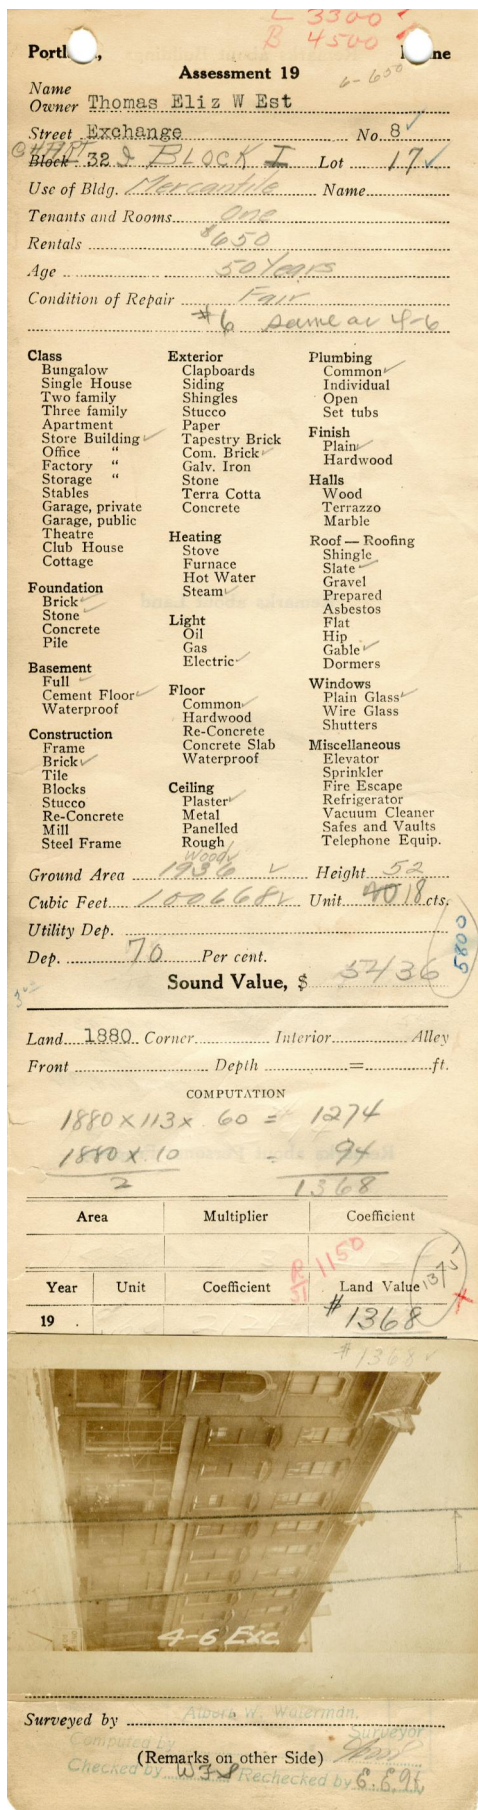 L 3300 ✓
B 4500 ✓
Portland, Maine
Assessment 19
6-650
Name
Owner Thomas Eliz W Est
Street Exchange No. 8 ✓
Block 32 I BLOCK I Lot 17 ✓
Use of Bldg. Mercantile Name
Tenants and Rooms One
Rentals $650
Age 50 Years
Condition of Repair Fair
#6 same as 4-6
Class
Bungalow
Single House
Two family
Three family
Apartment
Store Building ✓
Office "
Factory "
Storage "
Stables
Garage, private
Garage, public
Theatre
Club House
Cottage
Foundation
Brick ✓
Stone ✓
Concrete
Pile
Basement
Full ✓
Cement Floor ✓
Waterproof
Construction
Frame
Brick ✓
Tile
Blocks
Stucco
Re-Concrete
Mill
Steel Frame
Exterior
Clapboards
Siding
Shingles
Stucco
Paper
Tapestry Brick
Com. Brick ✓
Galv. Iron
Stone
Terra Cotta
Concrete
Heating
Stove
Furnace
Hot Water
Steam ✓
Light
Oil
Gas
Electric ✓
Floor
Common ✓
Hardwood
Re-Concrete
Concrete Slab
Waterproof
Ceiling
Plaster ✓
Metal
Panelled
Rough
Wood ✓
Plumbing
Common ✓
Individual
Open
Set tubs
Finish
Plain ✓
Hardwood
Halls
Wood
Terrazzo
Marble
Roof — Roofing
Shingle
Slate ✓
Gravel
Prepared
Asbestos
Flat
Hip
Gable ✓
Dormers
Windows
Plain Glass ✓
Wire Glass
Shutters
Miscellaneous
Elevator
Sprinkler
Fire Escape
Refrigerator
Vacuum Cleaner
Safes and Vaults
Telephone Equip.
Ground Area 1936 ✓ Height 52
Cubic Feet 100668 ✓ Unit 18 cts.
Utility Dep.
Dep. 70 Per cent.
5800
Sound Value, $ 5436
Land 1880 Corner Interior Alley
Front Depth = ft.
COMPUTATION
1880 x 113 x .60 = 1274
1880 x 10 = 94
2 1368
Area Multiplier Coefficient
R 1150
Year Unit Coefficient Land Value 1375
19 . #1368
#1368 ✓
4-6 Exc.
Albert W. Waterman.
Surveyed by Surveyor
Computed by
(Remarks on other Side)
Checked by WFS Rechecked by